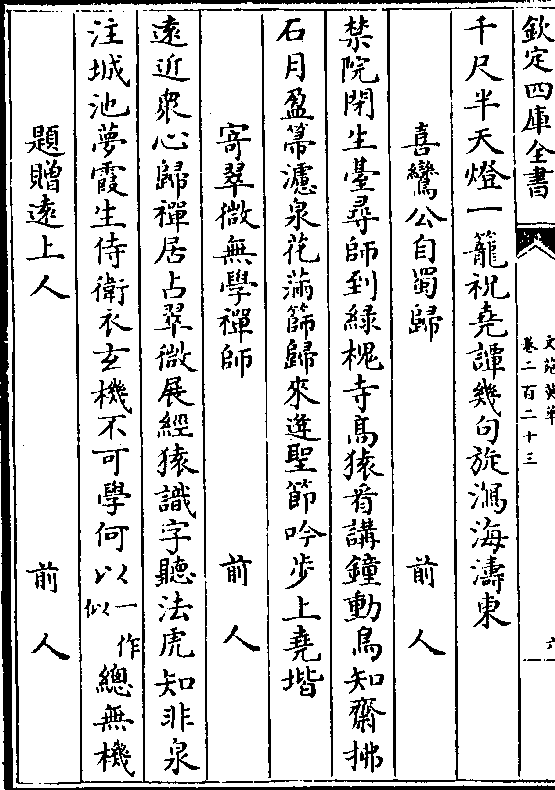 欽定四庫全書
文苑英華
卷二百二十三
六
千尺半天燈一籠祝堯譚幾句旋瀉海濤東
喜鸞公自蜀歸 前人
禁院閉生臺尋師到綠槐寺髙猿看講鐘動鳥知齋拂
石月盈箒濾泉花滿篩歸來逢聖節吟步上堯堦
寄翠微無學禪師 前人
逺近衆心歸禪居占翠微展經猿識字聽法虎知非泉
注城池夢霞生侍衛衣玄機不可學何以一作似總無機
題贈逺上人 前人